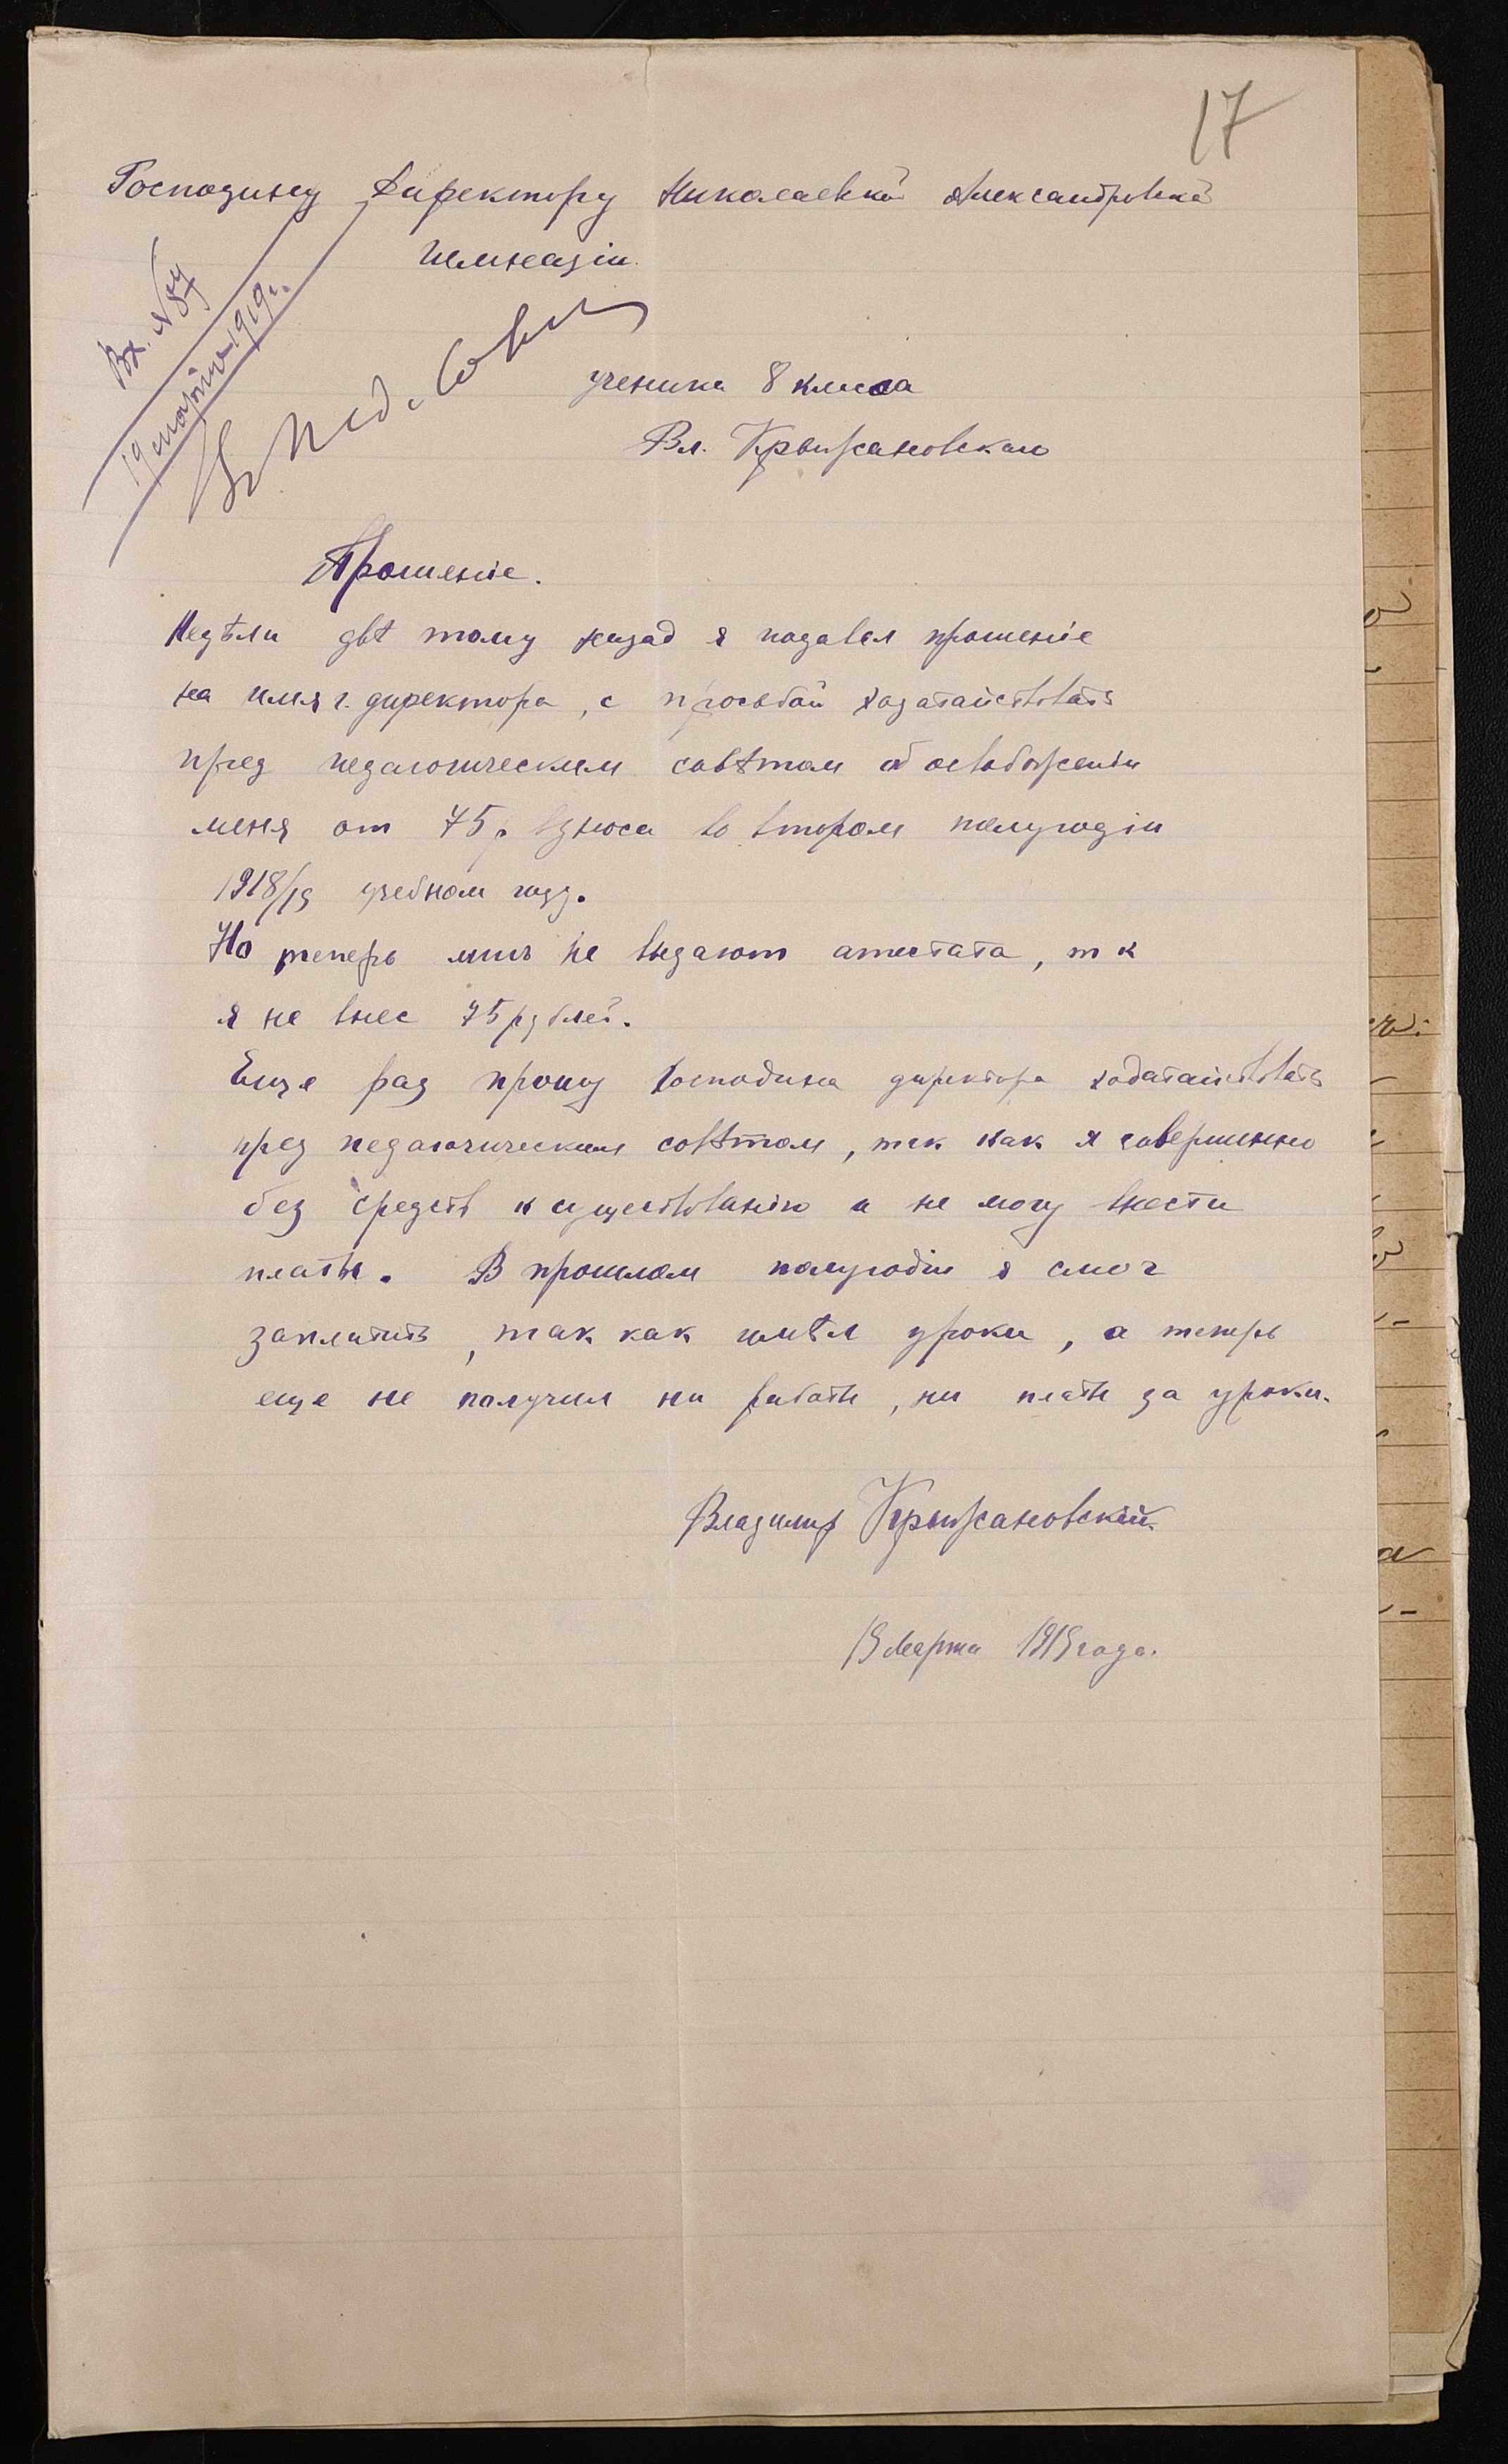 17
Господину Директору Николаевской Александровской
гимназіи.
Вх. № 84
19 марта 1919 г.
В Пед. Совет
ученика 8 класса
Вл. Крыжановскаго
Прошеніе.
Недѣли двѣ тому назад я подавал прошеніе
на имя г. директора, с просьбой ходатайствовать
пред педагогическим совѣтом об освобожденіи
меня от 75 р взноса во втором полугодіи
1918/19 учебном году.
Но теперь мнѣ не выдают аттестата, т к
я не внес 75 рублей.
Еще раз прошу Господина директора ходатайствовать
пред педагогическим совѣтом, так как я совершенно
без средств к существованію и не могу внести
платы. В прошлом полугодіи я смог
заплатить, так как имѣл уроки, а теперь
еще не получил ни работы, ни платы за уроки.
Владимир Крыжановскій.
19 Марта 1919 года.